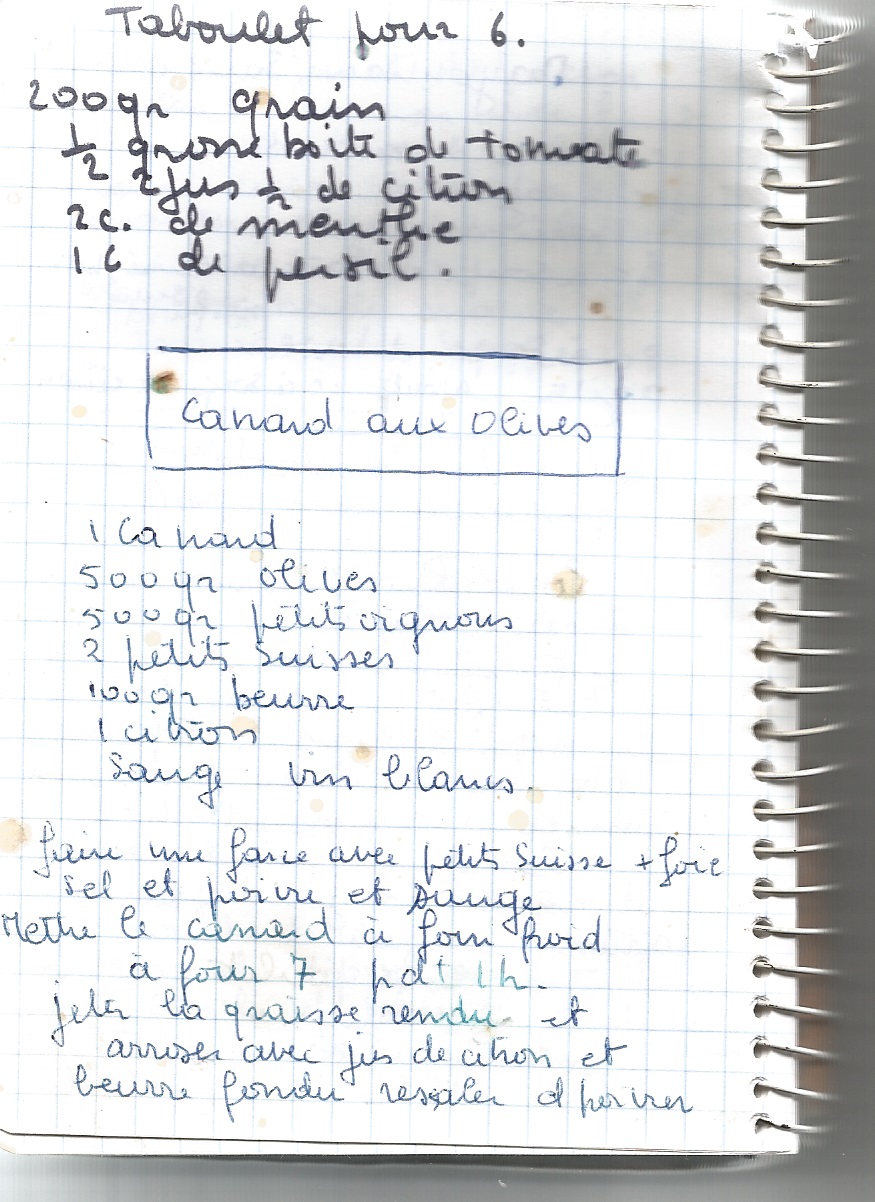 Taboulet pour 6.
200gr grain
1/2 grosse boite de tomate
2 jus 1/2 de citron
2 c. de menthe
1 c de persil.
Canard aux Olives
1 Canard
500gr olives
500gr petits oignons
2 petits suisses
100gr beurre
1 citron
Sauge vin blancs.
faire une farce avec petits Suisse + foie
sel et poivre et sauge
Mettre le canard à four froid
à four 7 pdt 1h.
jeter la graisse rendu et
arroser avec jus de citron et
beurre fondu resaler et poivrer